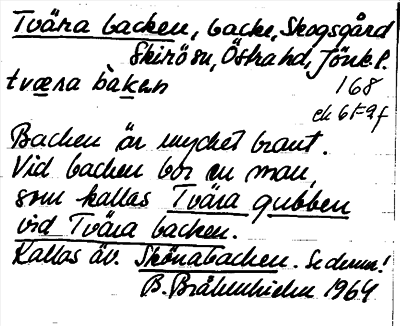 Tvära backen, backe, Skogsgård
Skirö sn, Östra hd, Jönk. l.
tværa bàkən
168
ek 6F9f
Backen är mycket brant.
Vid backen bor en man,
som kallas Tvära gubben
vid Tvära backen.
Kallas äv. Skönabacken. Se denna!
B. Bråkenhielm 1964